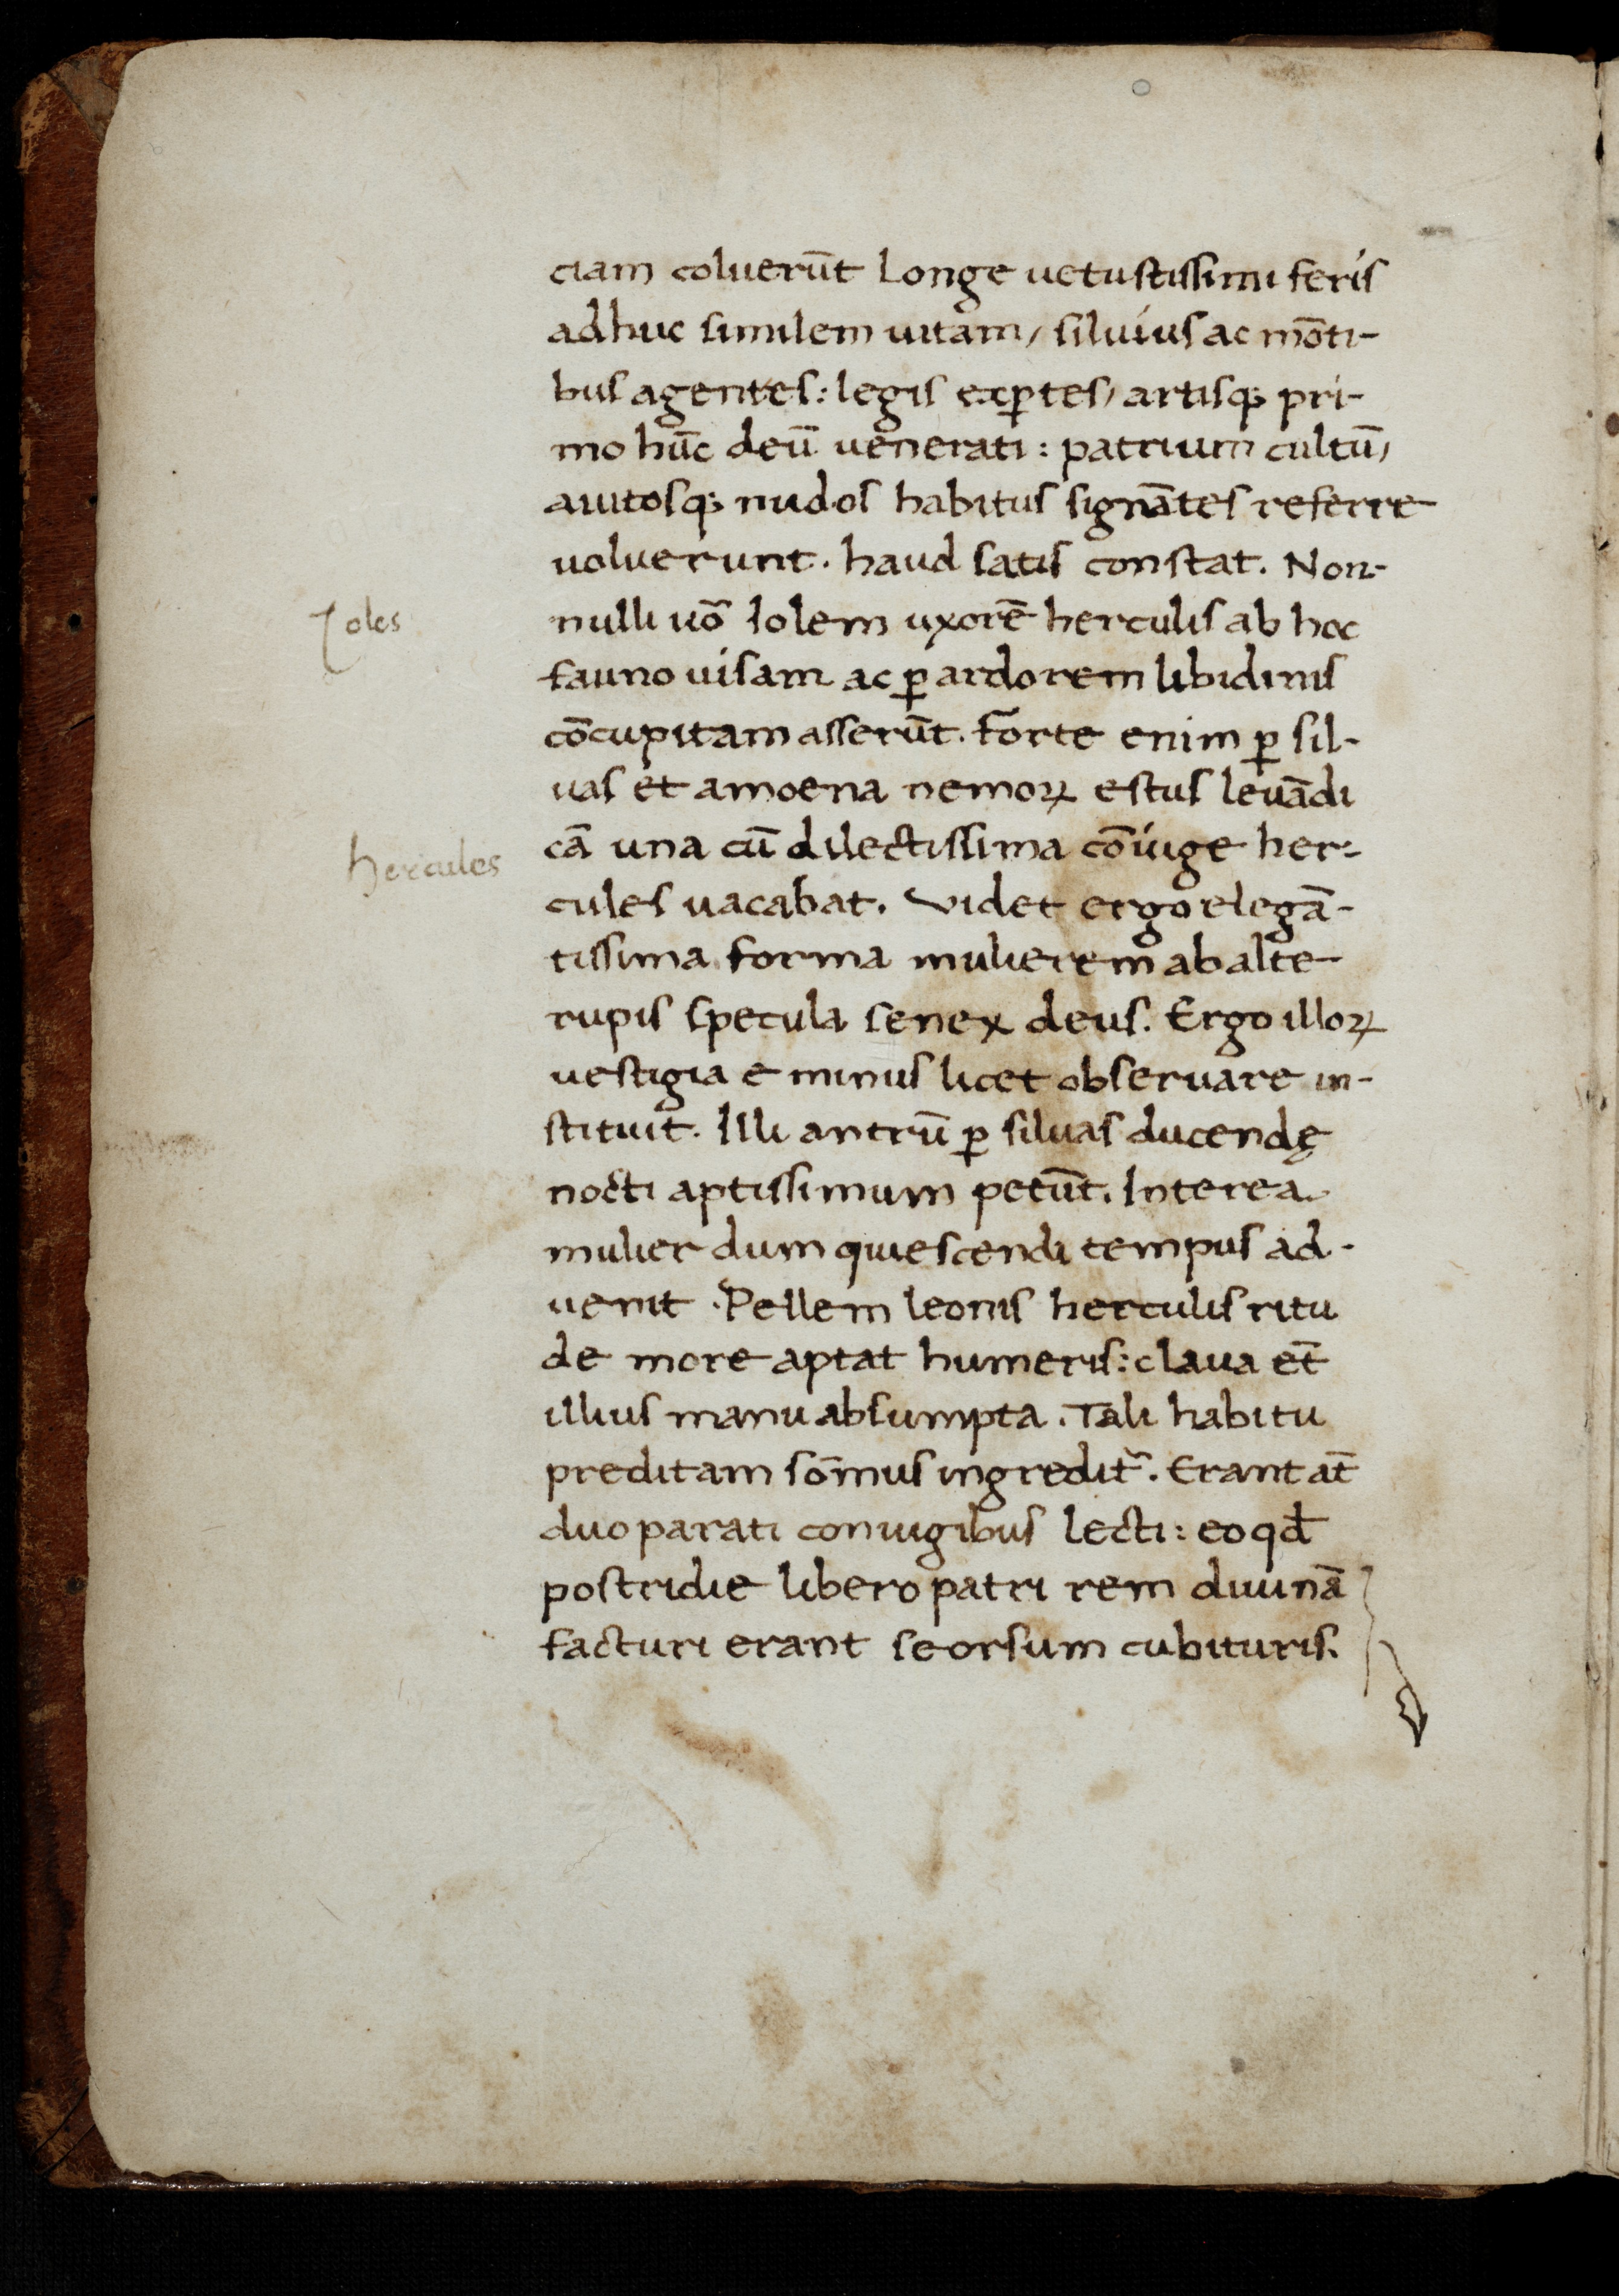 ciam coluerūt Longe uetustissimi feris
adhuc similem uitam, siluius ac mōti-
bus agentes: legis exꝑtes, artisqꝫ pri-
mo hūc deū uenerati: patrium cultū,
auitosqꝫ nudos habitus signātes referre
uoluerunt. haud satis constat. Non-
Ioles
nulli uō Iolem uxorē herculis ab hoc
fauno uisam ac ꝑ ardorem libidinis
cōcupitam asserūt. Forte enim ꝑ sil-
uas et amoena nemoꝝ estus leuādi
hercules
cā una cū dilectissima cōiuge her-
cules uacabat. Videt ergo elegā-
tissima forma mulierem ab alte
rupis specula senex deus. Ergo illoꝝ
uestigia eminus licet obseruare in-
stituit. Illi antrū ꝑ siluas ducendę
nocti aptissimum petūt. Interea
mulier dum quiescendi tempus ad-
uenit. Pellem leonis herculis ritu
de more aptat humeris: claua et̄
illius manu absumpta. Tali habitu
preditam sōmus ingredit᷑. Erant at̄
duo parati coniugibus lecti: eo qđ
postridie libero patri rem diuinā
facturi erant seorsum cubituris.